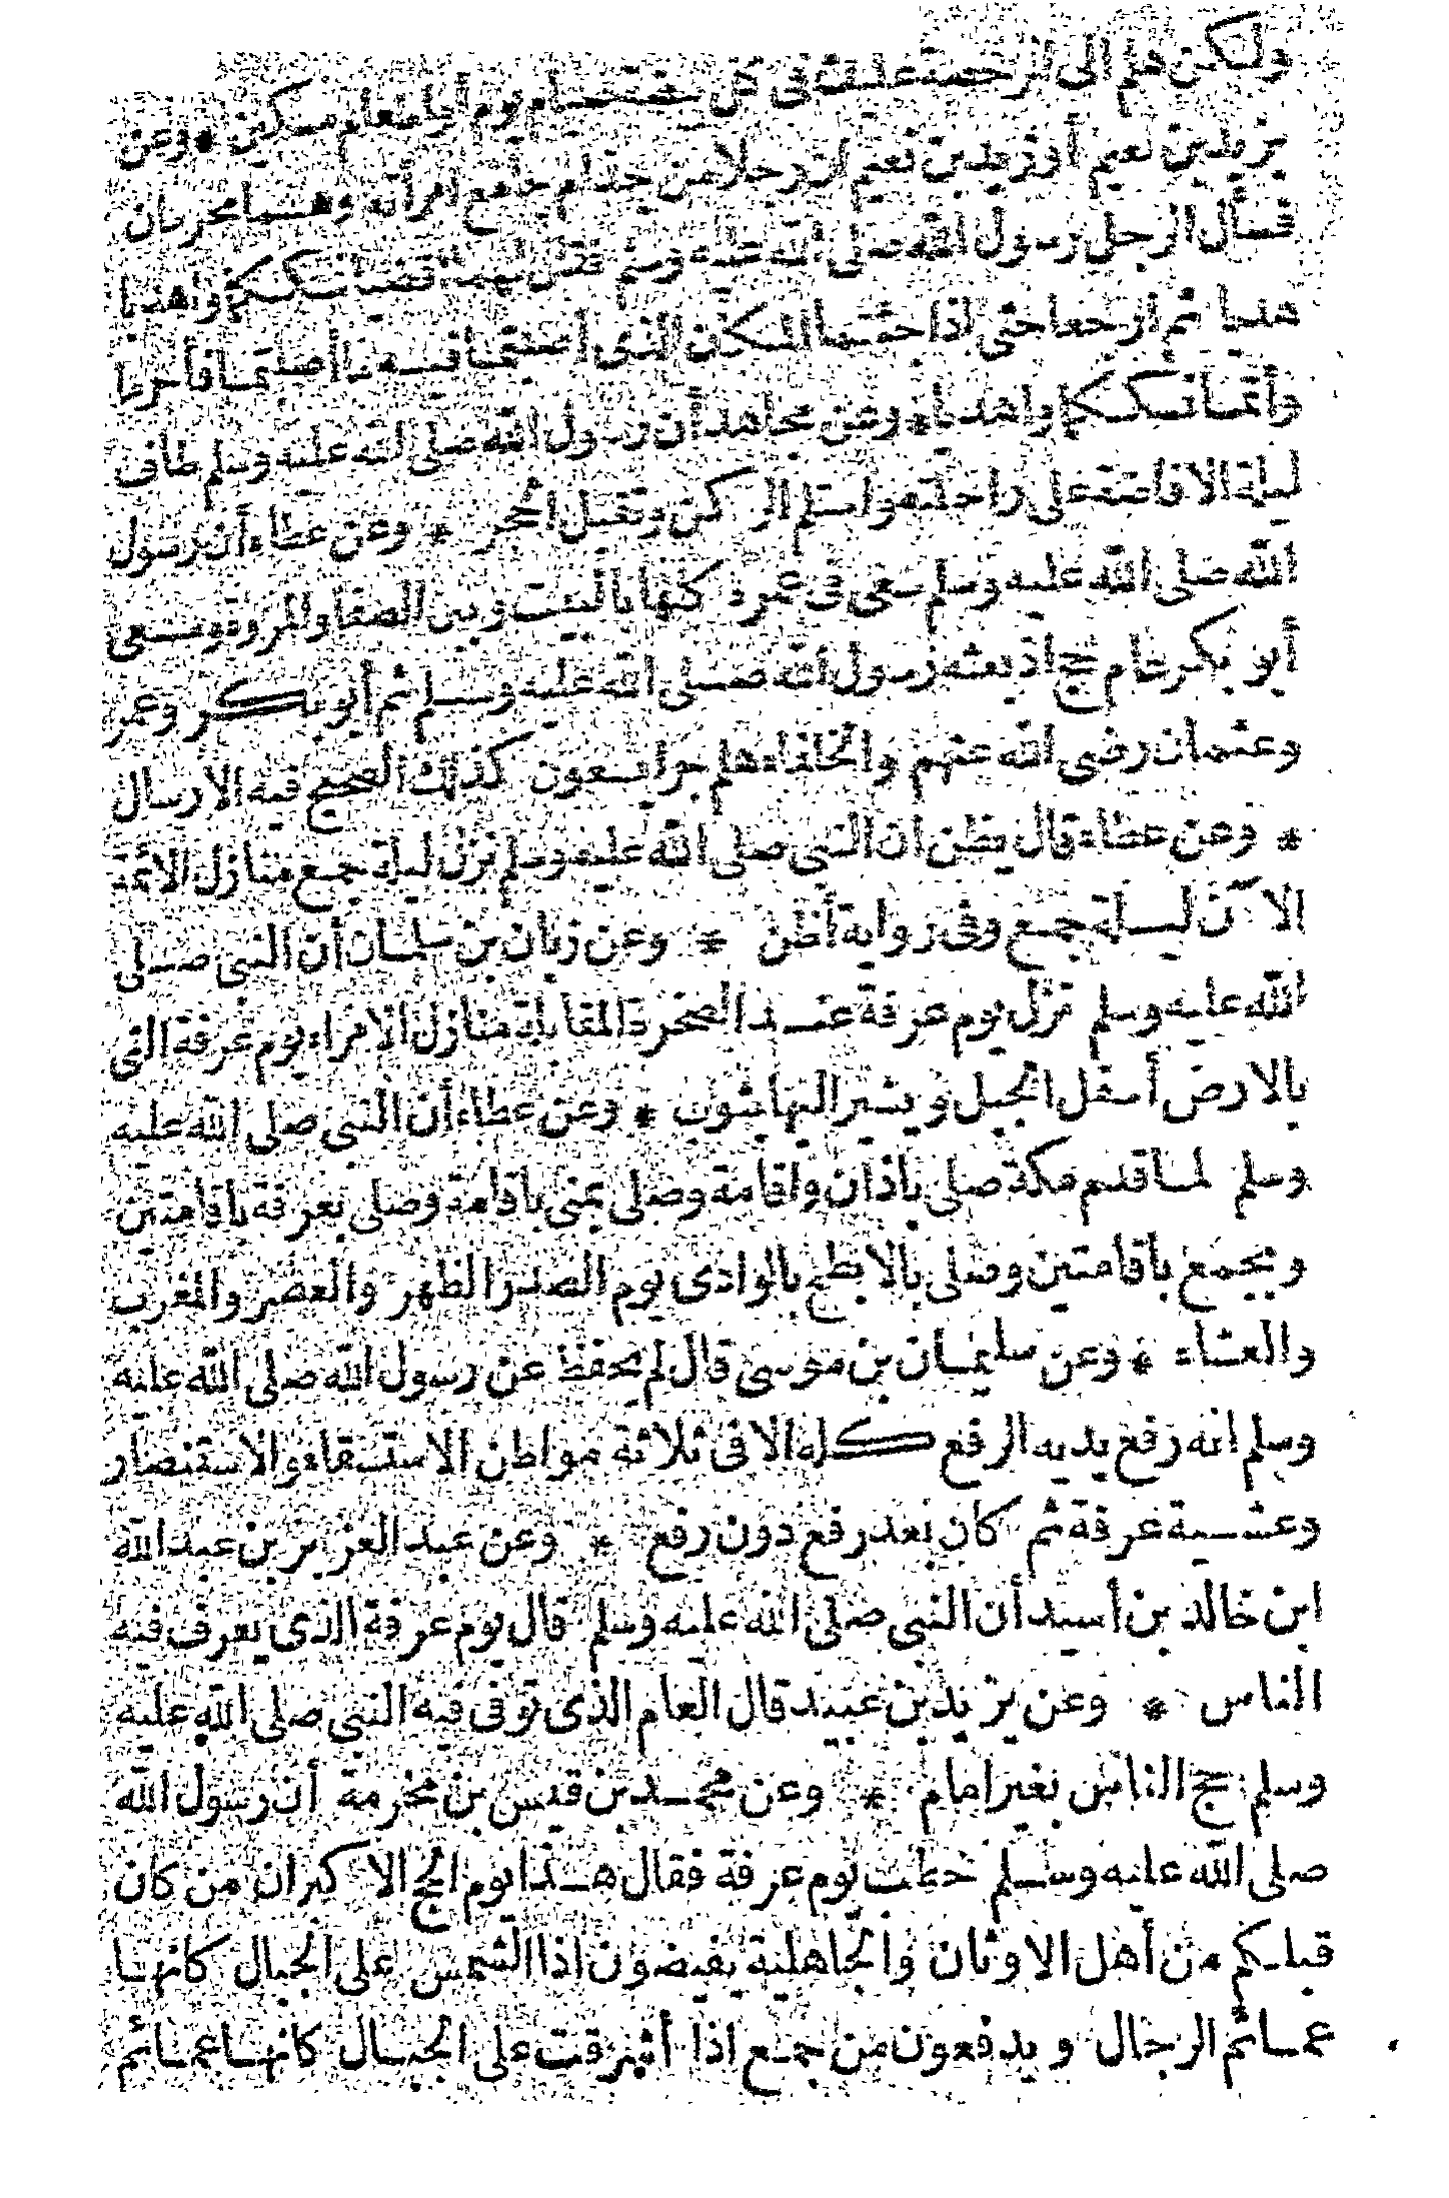 ولكن هلم الى الرحمة عليك في كل شحماء يوم اطعام مسكين * وعن
يزيد بن نعيم أو زيد بن نعيم ان رجلا من جذام جامع امرأته وهما محرمان
فسأل الرجل رسول الله صلى الله عليه وسلم فقال لهما اقضيا نسككما واهديا
هديا ثم ارجعا حتى اذا جئتما المكان الذي أصبتما فيه ما أصبتما فأحرما
وأتما نسككما واهديا * وعن مجاهد أن رسول الله صلى الله عليه وسلم طاف
ليلة الافاضة على راحلته واستلم الركن وتقبل الحجر * وعن عطاء أن رسول
الله صلى الله عليه وسلم سعى في عمره كلها بالبيت وبين الصفا والمروة وسعى
أبو بكر عام حج اذ بعثه رسول الله صلى الله عليه وسلم ثم أبو بكر وعمر
وعثمان رضى الله عنهم والخلفاء هلم جرا يسعون كذلك الصحيح فيه الارسال
* وعن عطاء قال يظن ان النبي صلى الله عليه وسلم نزل ليلة جمع منازل الائمة
الآن ليلة جمع وفي رواية أظن * وعن زبان بن سلمان أن النبي صلى
الله عليه وسلم نزل يوم عرفة عند الصخرة المقابلة منازل الامراء يوم عرفة التى
بالارض أسفل الجبل ويشير اليها بثوب * وعن عطاء أن النبي صلى الله عليه
وسلم لما قدم مكة صلى باذان واقامة وصلى بمنى باقامة وصلى بعرفة باقامتين
وبجمع باقامتين وصلى بالابطح بالوادى يوم الصدر الظهر والعصر والمغرب
والعشاء * وعن سليمان بن موسى قال لم يحفظ عن رسول الله صلى الله عليه
وسلم انه رفع يديه الرفع كله الا في ثلاثة مواطن الاستسقاء والاستنصار
وعشية عرفة ثم كان بعد رفع دون رفع * وعن عبد العزيز بن عبد الله
ابن خالد بن أسيد أن النبي صلى الله عليه وسلم قال يوم عرفة الذى يعرف فيه
الناس * وعن يزيد بن عبيد قال العام الذى توفى فيه النبي صلى الله عليه
وسلم حج الناس بغير امام * وعن محمد بن قيس بن مخرمة أن رسول الله
صلى الله عليه وسلم خطب يوم عرفة فقال هذا يوم الحج الاكبر ان من كان
قبلكم من أهل الاوثان والجاهلية يفيضون اذا الشمس على الجبال كانها
عمائم الرجال ويدفعون من جمع اذا أشرقت على الجبال كانها عمائم